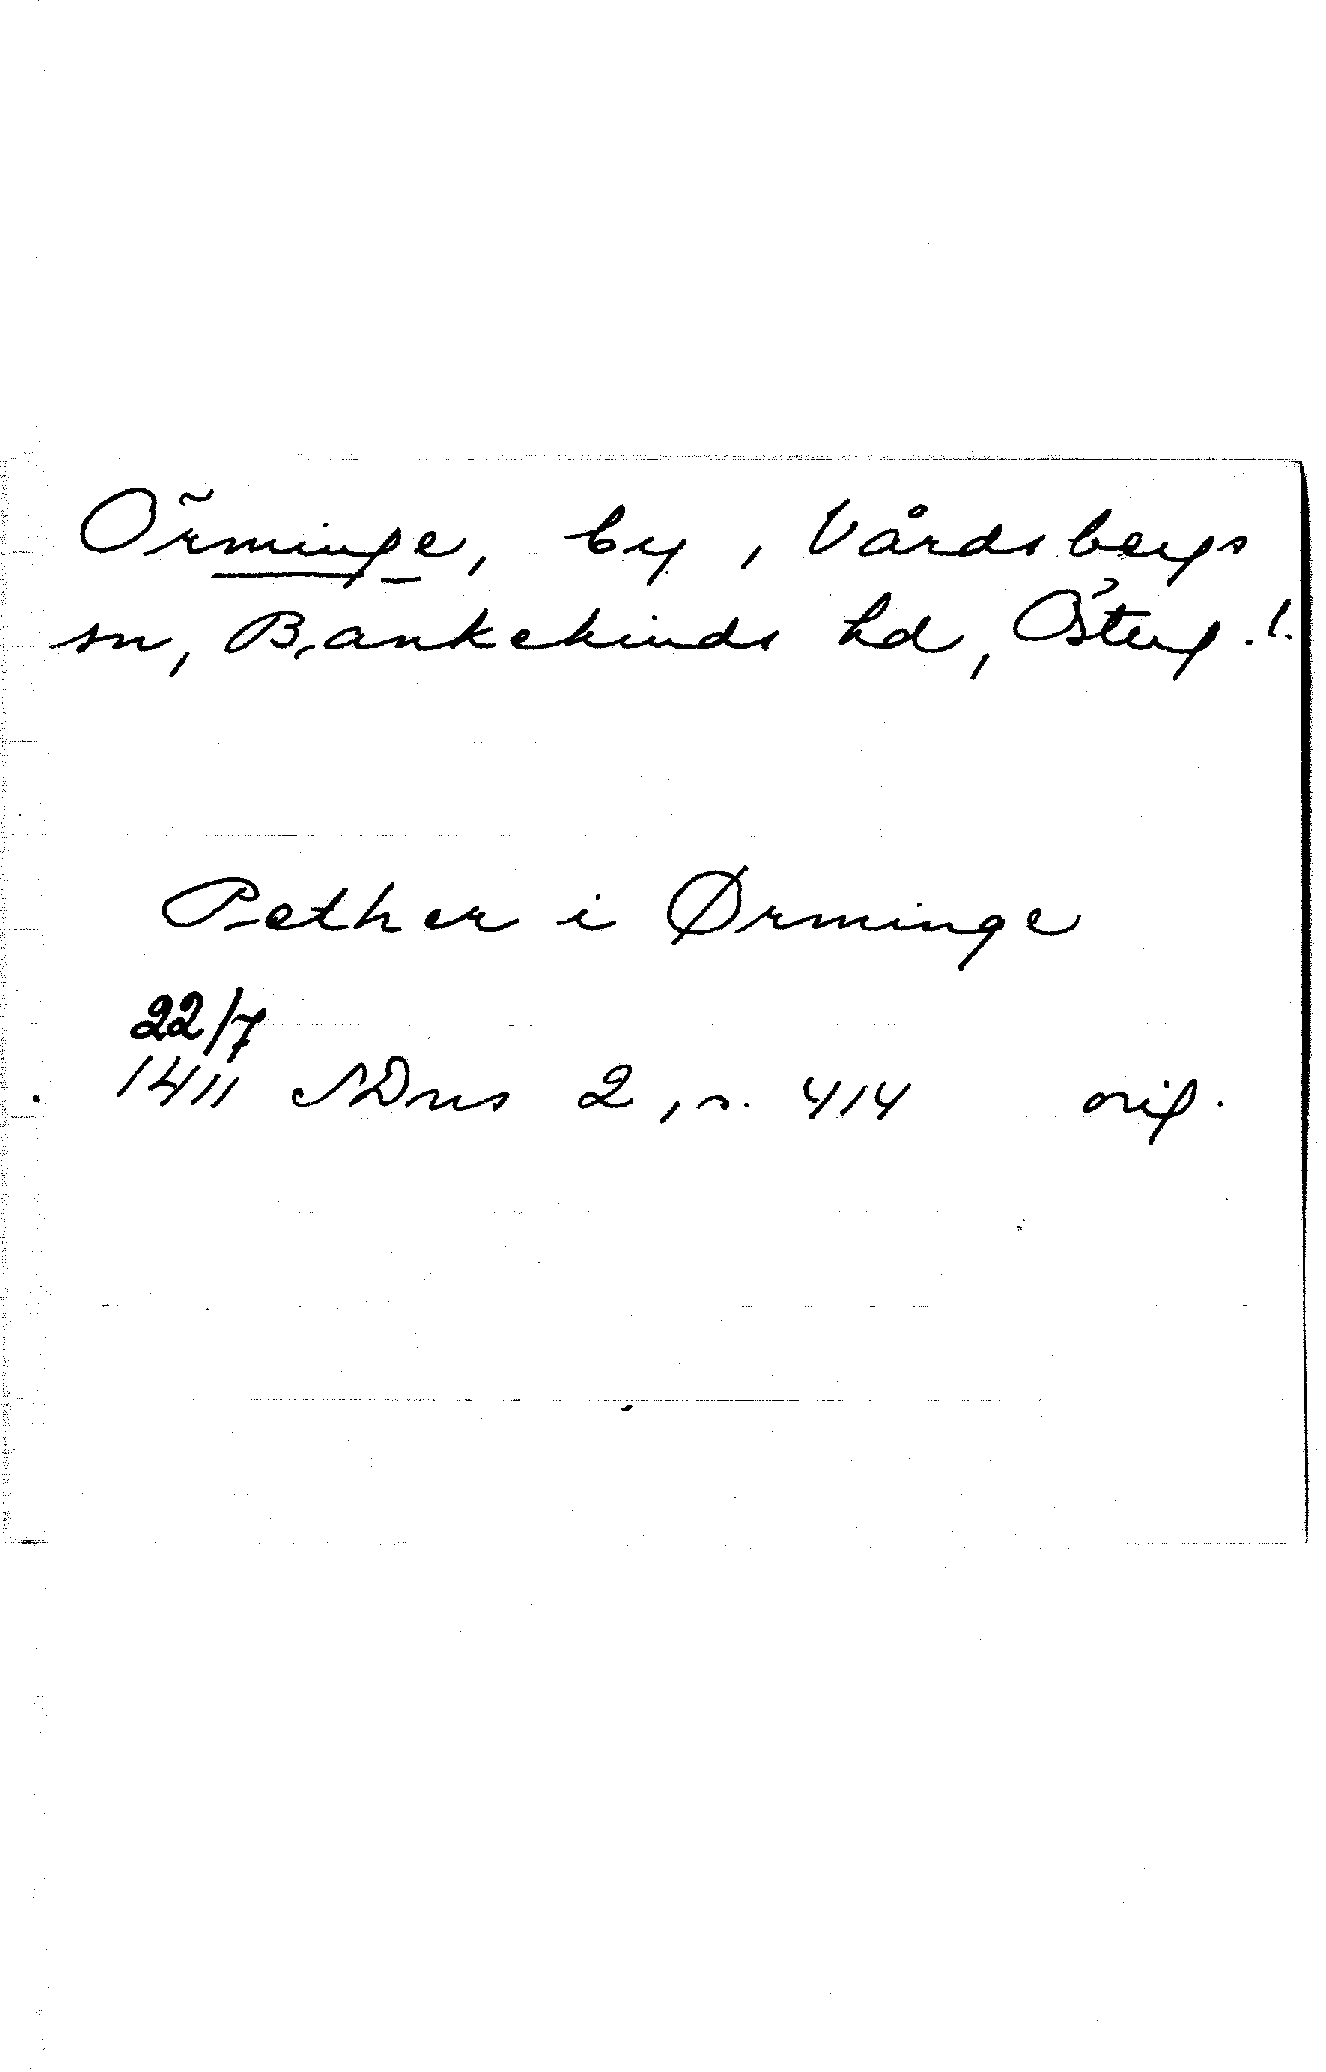 Örminge, by, Vårdsbergs
sn, Bankekinds hd, Österg.l.
Pether i Ørminge
22/7
1411 SDns 2, s. 414 orig.